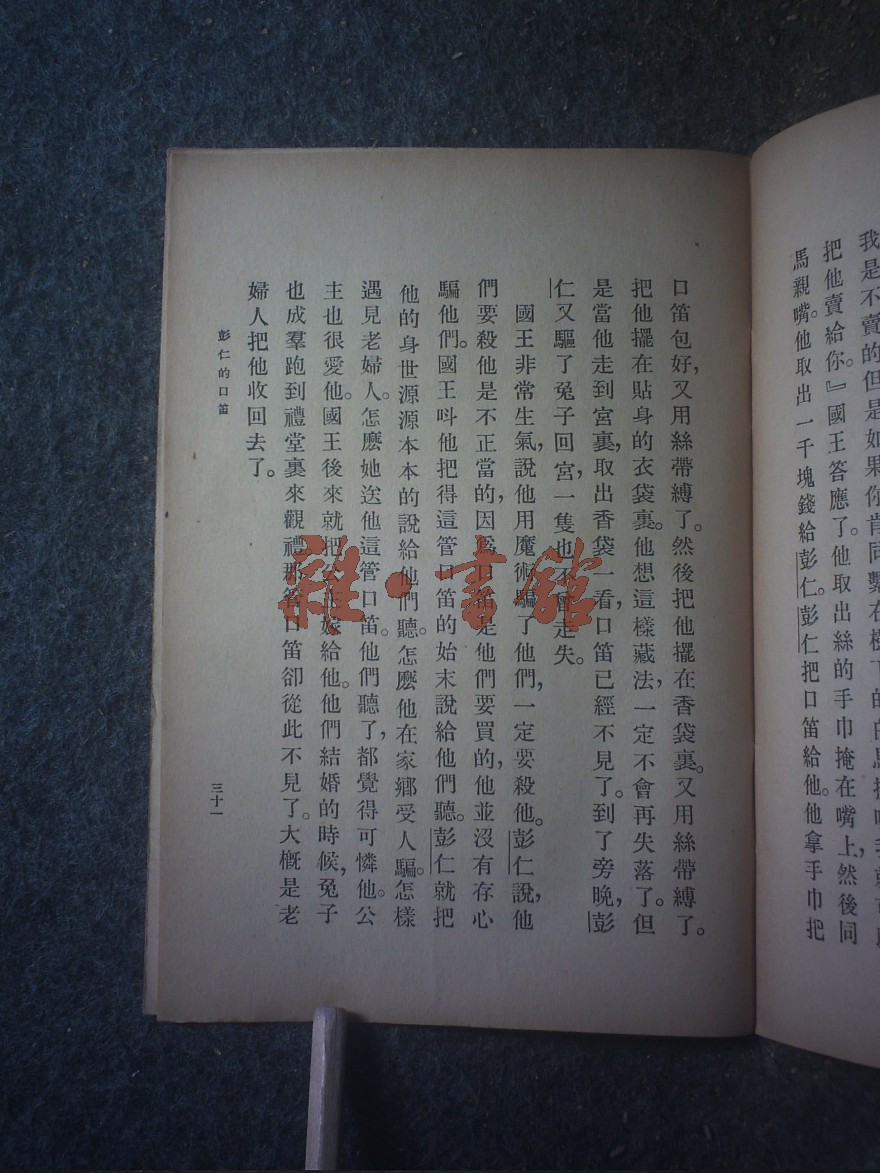 我是不賣的但是如果你肯同
把他賣給你。』國王答應了。他取出絲的手巾掩在嘴上，然後同
馬親嘴。他取出一千塊錢給彭仁。彭仁把口笛給他。他拿手巾把
口笛包好，又用絲帶縛了。然後把他擺在香袋裏。又用絲帶縛了。
把他擺在貼身的衣袋裏。他想這樣藏法，一定不會再失落了。但
是當他走到宮裏，取出香袋一看，口笛已經不見了。到了旁晚，彭
仁又驅了兔子回宮，一隻也不會走失。
國王非常生氣，說他用魔術騙了他們，一定要殺他。彭仁說，他
們要殺他是不正當的，因爲口笛是他們要買的，他並沒有存心
騙他們。國王呌他把得這管口笛的始末說給他們聽。彭仁就把
他的身世源源本本的說給他們聽。怎麽他在家鄉受人騙。怎樣
遇見老婦人。怎麽她送他這管口笛。他們聽了，都覺得可憐他。公
主也很愛他。國王後來就把公主嫁給他。他們結婚的時候，兔子
也成羣跑到禮堂裏來觀禮那管口笛卻從此不見了。大概是老
婦人把他收回去了。
彭仁的口笛
三十一
雜·書館